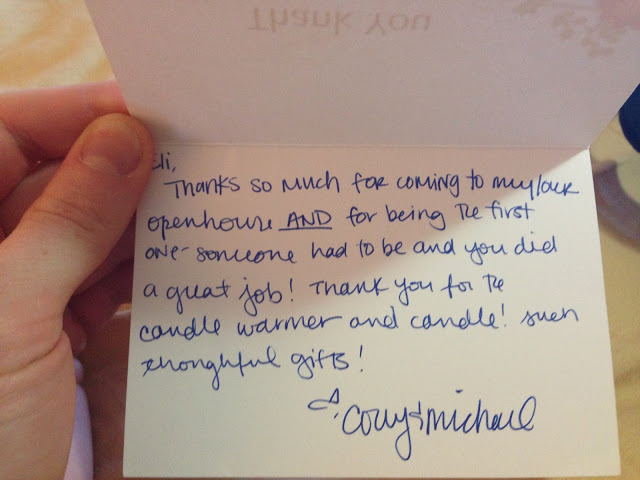 Thank You
Eli,
Thanks so much for coming to my/our
openhouse AND for being the first
one- someone had to be and you did
a great job! Thank you for the
candle warmer and candle! such
thoughtful gifts!
Cory & Michael